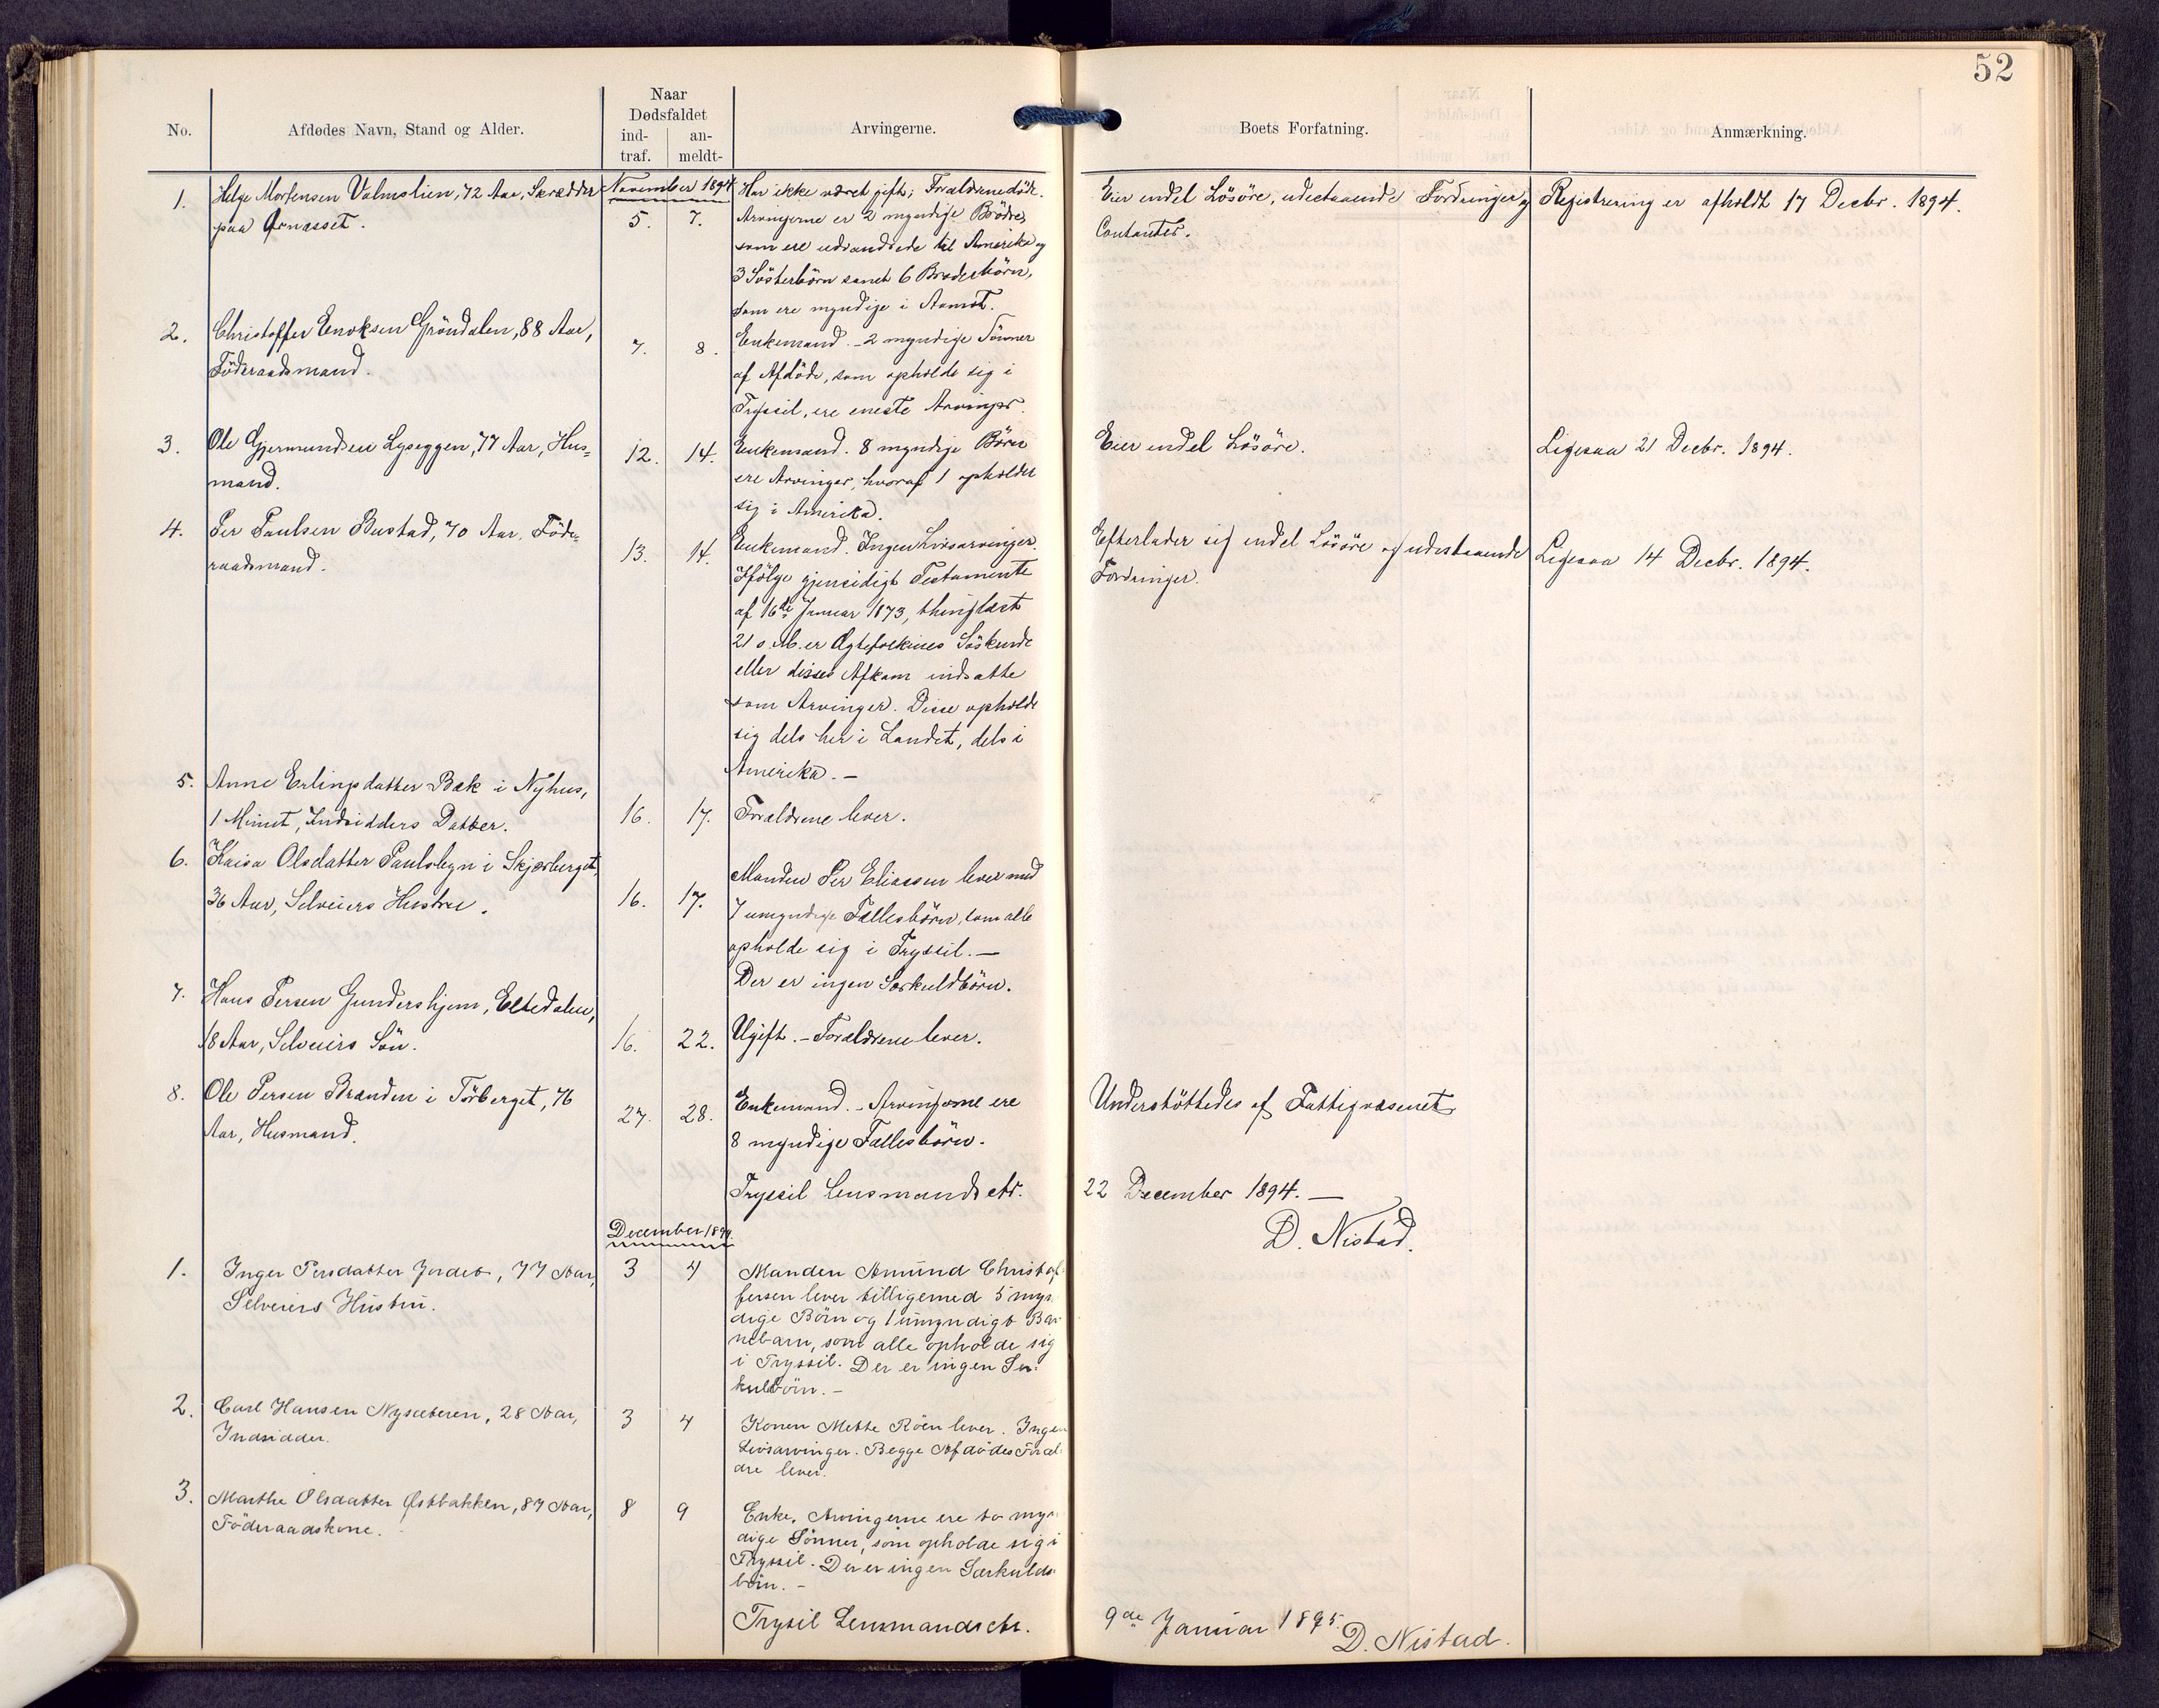 52
No.
Afdødes Navn, Stand og Alder.
Naar
Dødsfaldet
ind-
traf.
an-
meldt-
Arvingerne.
Boets Forfatning.
Anmærkning.
November 1894
1.
Helge Mortensen Valmslien, 72 Aar, Skrædder
paa Ørnæsset.
5. 7.
Har ikke været gift; Forældrene døde.
Arvingerne er 2 myndige Brødre,
som ere udvandrede til Amerika og
3 Søsterbørn samt 6 Broderbørn,
som ere myndige i Aamot.
Eier endel Løsøre, udestaaende Fordringer og
Contanter.
Registrering er afholdt 17 Decbr. 1894.
2.
Christoffer Enoksen Grøndalen, 88 Aar,
Føderaadsmand.
7. 8.
Enkemand. - 2 myndige Sønner
af Afdøde, som opholde sig i
Trysil, ere eneste Arvinger.
3.
Ole Gjermundsen Lyseggen, 77 Aar, Hus=
mand.
12. 14.
Enkemand. 8 myndige Børn
ere Arvinger, hvoraf 1 opholder
sig i Amerika.
Eier endel Løsøre.
Ligesaa 21 Decbr. 1894.
4.
Per Paulsen Bustad, 70 Aar, Føde=
raadsmand.
13. 14.
Enkemand. Ingen Livsarvinger.
Ifølge gjensidigt Testamente
af 16de Januar 1873, thinglæst
21 s. M. er Ægtefolkenes Søskende
eller disses Afkom indsatte
som Arvinger. Disse opholde
sig dels her i Landet, dels i
Amerika. -
Efterlader sig endel Løsøre og udestaaende
Fordringer.
Ligesaa 14 Decbr. 1894.
5.
Anne Erlingsdatter Bæk i Nyhus,
1 Minut, Indsidders Datter.
16. 17.
Forældrene lever.
6.
Kaisa Olsdatter Paulsbyn i Skjærberget,
36 Aar, Selveiers Hustru.
16. 17.
Manden Per Eliassen lever med
7 umyndige Fællesbørn, som alle
opholde sig i Trysil. -
Der er ingen Særkuldbørn.
7.
Hans Persen Gundershjem, Eltedalen,
18 Aar, Selveiers Søn.
16. 22.
Ugift. - Forældrene lever.
8.
Ole Persen Brænden i Tørberget, 76
Aar, Husmand.
27. 28.
Enkemand. - Arvingerne ere
8 myndige Fællesbørn.
Understøttedes af Fattigvæsenet
Tryssil Lensmandsctr. 22 December 1894. -
D. Nistad.
December 1894.
1.
Inger Persdatter Jordet, 77 Aar,
Selveiers Hustru.
3 4
Manden Amund Christof-
fersen lever tilligemed 5 myn-
dige Børn og 1 umyndigt Bar-
nebarn, som alle opholde sig
i Tryssil. Der er ingen Sær-
kuldbørn. -
2.
Carl Hansen Nysæteren, 28 Aar,
Indsidder.
3 4
Konen Mette Röen lever. Ingen
Livsarvinger. Begge Afdødes Foræl-
dre lever.
3.
Marthe Olsdatter Østbakken, 87 Aar,
Føderaadskone.
8 9
Enke. Arvingerne ere to myn-
dige Sønner, som opholde sig i
Tryssil. Der er ingen Særkulds-
børn. -
Trysil Lensmandsctr. 9de Januar 1895.
D. Nistad.